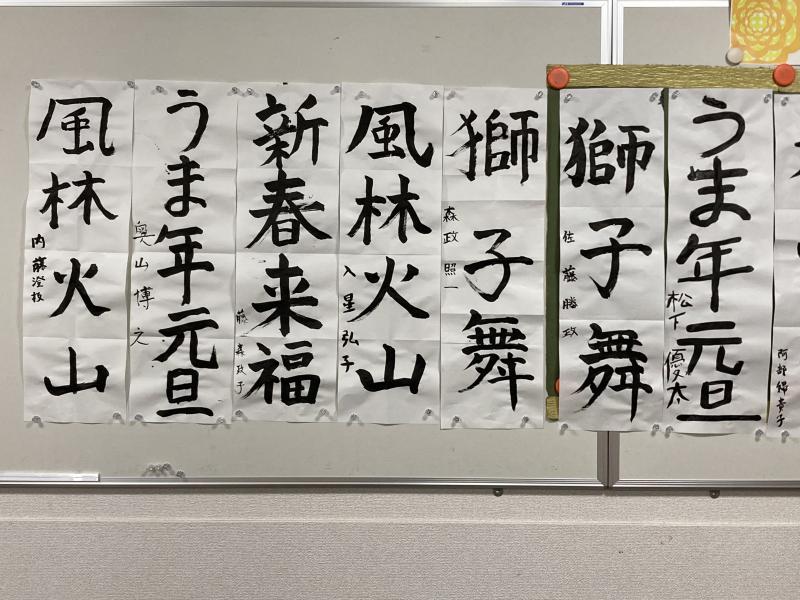 うまま年元旦
松下優太
獅子舞
佐藤勝政
獅子舞
森政照一
風林火山
入星弘子
新春来福
うま年元旦
奥山博之
風林火山
内藤澄枝